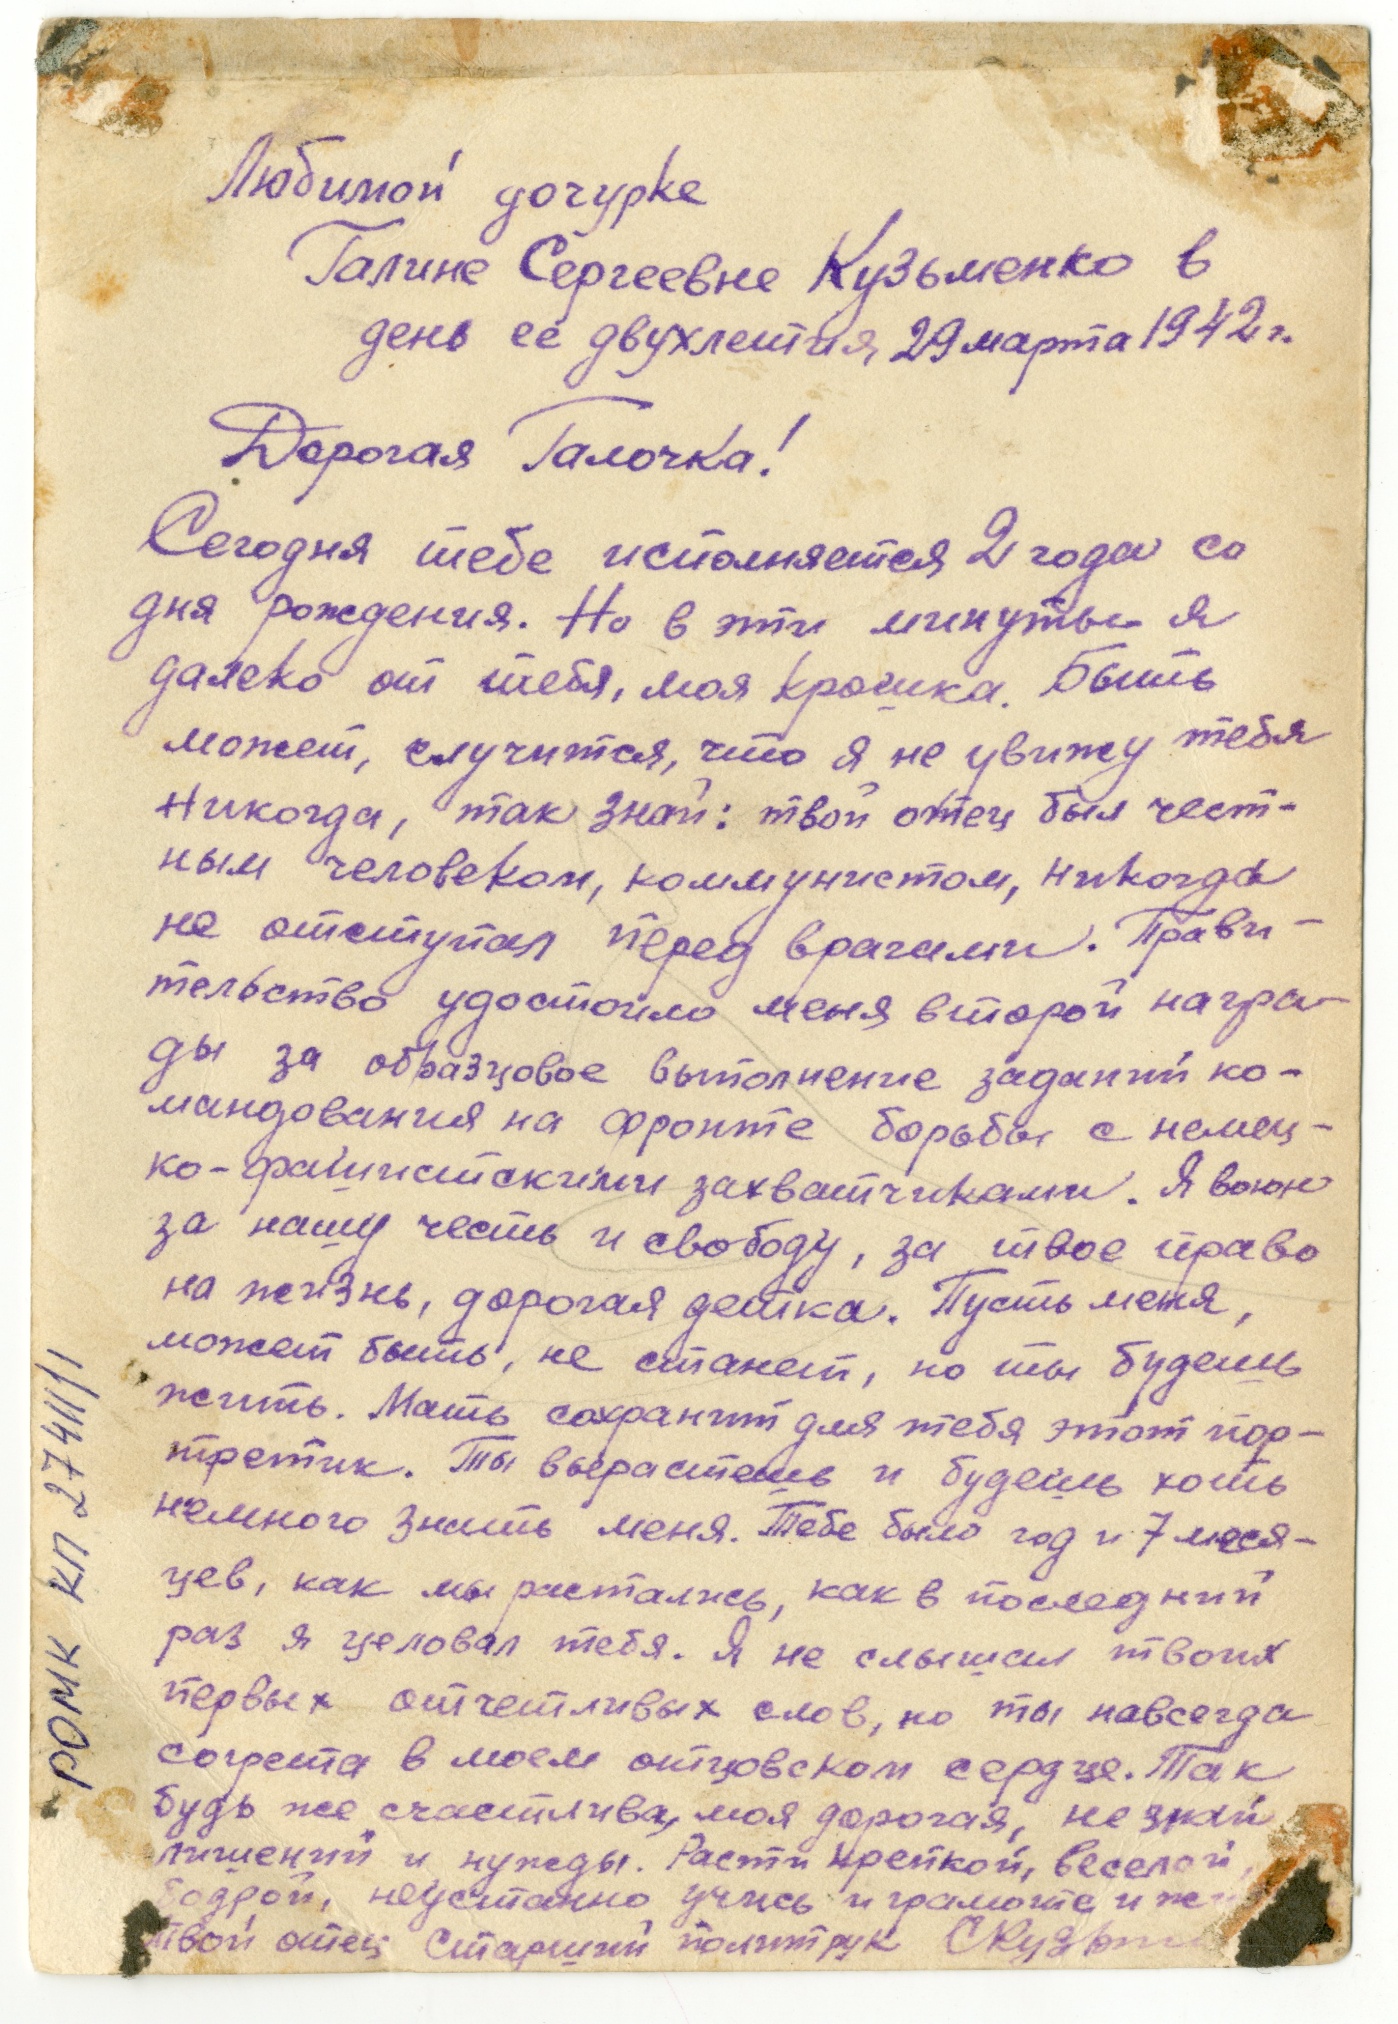 Любимой дочурке
Галине Сергеевне Кузьменко в
день ее двухлетия, 29 марта 1942 г.
Дорогая Галочка!
Сегодня тебе исполняется 2 года со
дня рождения. Но в эти минуты я
далеко от тебя, моя крошка. Быть
может, случится, что я не увижу тебя
никогда, так знай: твой отец был чест-
ным человеком, коммунистом, никогда
не отступал перед врагами. Прави-
тельство удостоило меня второй награ-
ды за образцовое выполнение заданий ко-
мандования на фронте борьбы с немец-
ко-фашистскими захватчиками. Я воюю
за нашу честь и свободу, за твое право
на жизнь, дорогая детка. Пусть меня,
может быть, не станет, но ты будешь
жить. Мать сохранит для тебя этот пор-
третик. Ты вырастешь и будешь хоть
немного знать меня. Тебе было год и 7 меся-
цев, как мы растались, как в последний
раз я целовал тебя. Я не слышал твоих
первых отчетливых слов, но ты навсегда
согрета в моем отцовском сердце. Так
будь же счастлива, моя дорогая, не знай
лишений и нужды. Расти крепкой, веселой,
бодрой, неустанно учись и грамоте и
Твой отец старший политрук
РОМК КП 27411/1